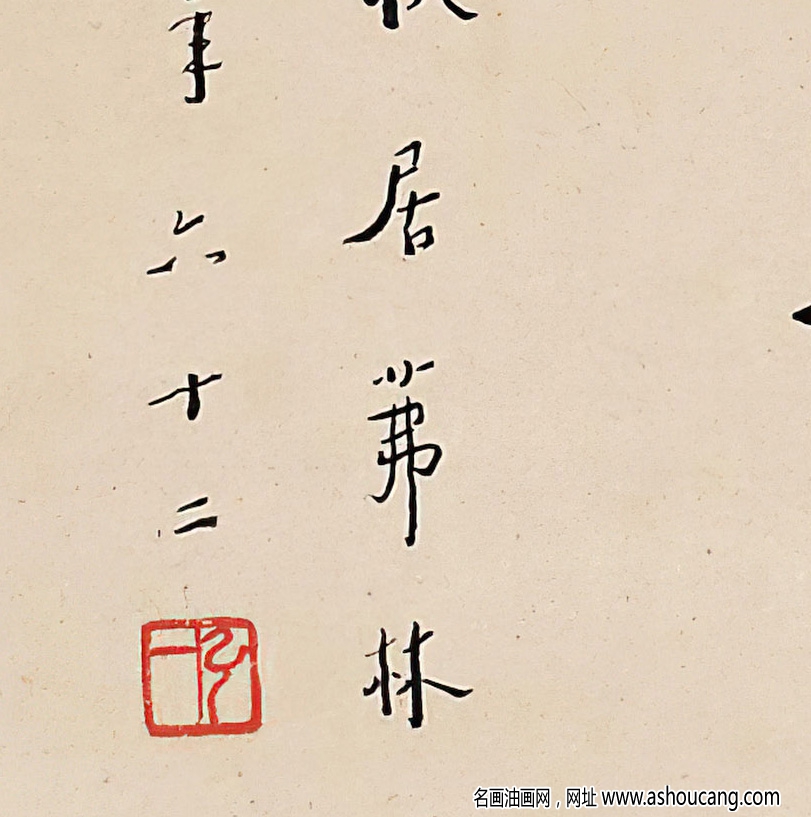 居茀林
年六十二
弘一
名画油画网，网址 www.ashoucang.com